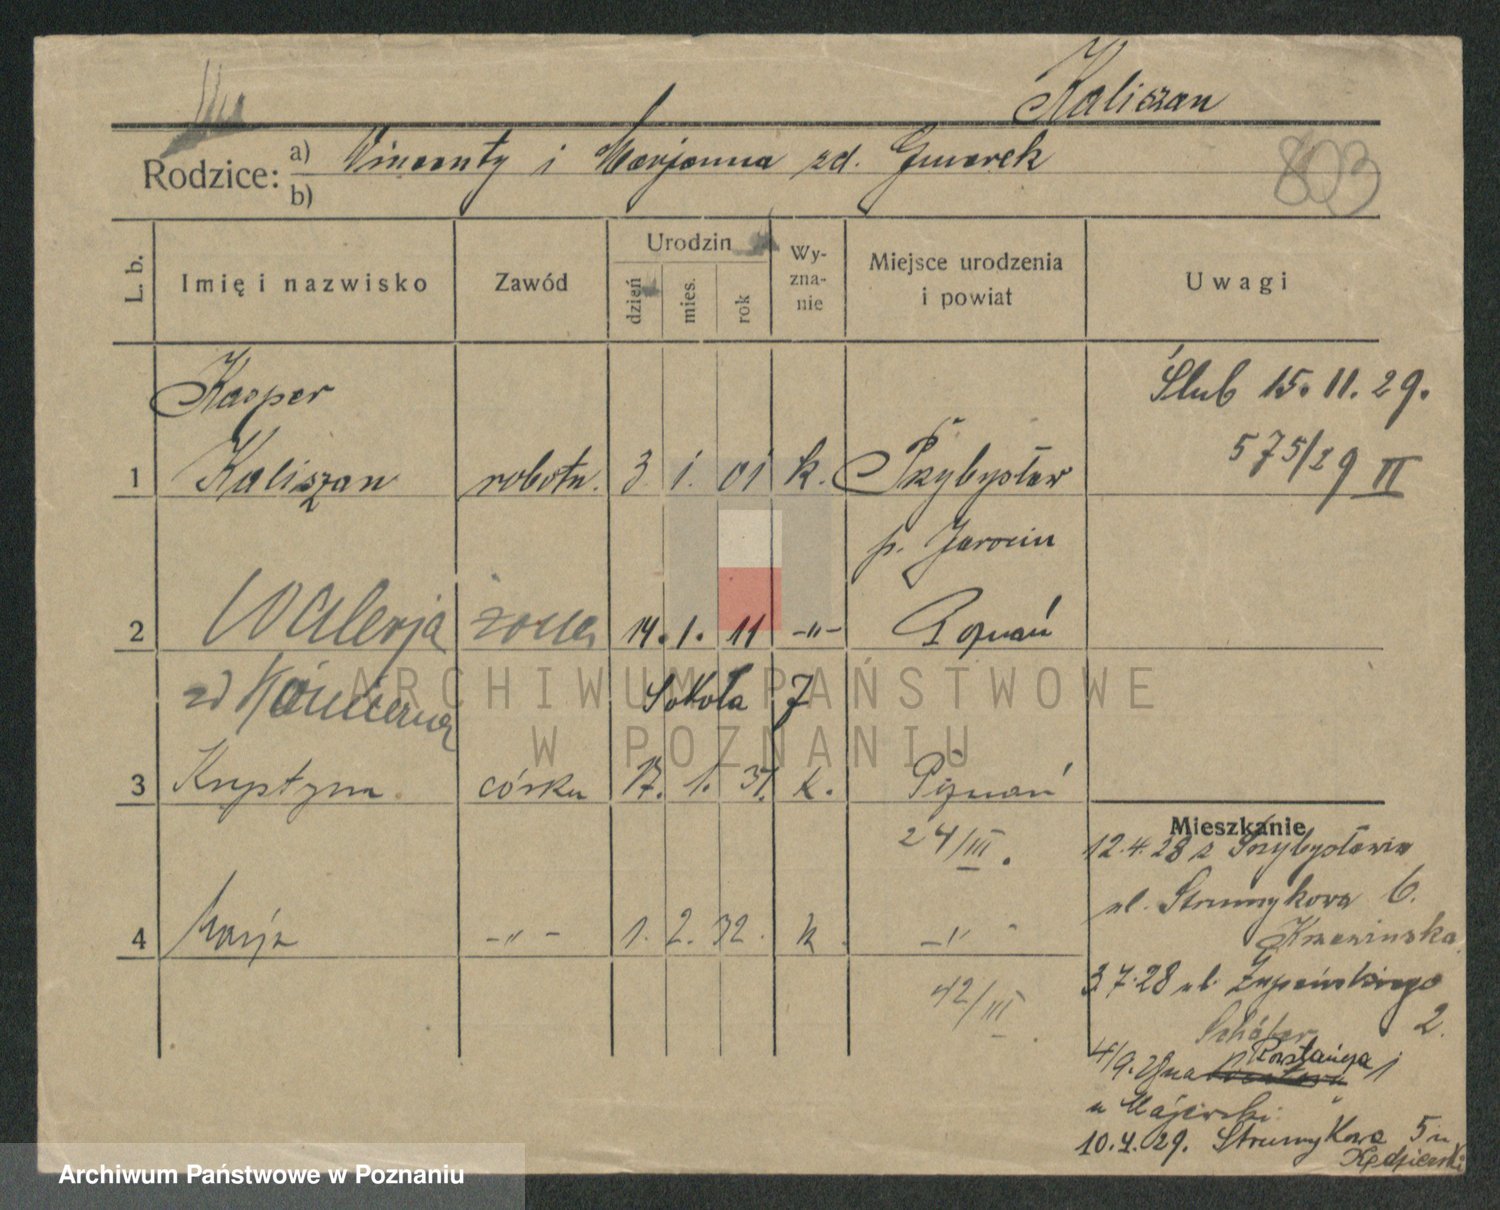 Kaliszan
Rodzice: a) Wincenty i Marjanna zd. Gmerek
b)
803
L. b.
Imię i nazwisko
Zawód
Urodzin
dzień
mies.
rok
Wy-
zna-
nie
Miejsce urodzenia
i powiat
Uwagi
Kasper
Ślub 15.11.29.
575/29 II
1 Kaliszan robotn. 3. 1. 01 k. Przybysław
p. Jarocin
2 Walerja żona 14. 1. 11 -"- Poznań
zd
Sokoła 7
ARCHIWUM PAŃSTWOWE
W POZNANIU
3 Krystyna córka 17. 1. 31. k. Poznań
24/III.
Mieszkanie
12.4.28 z Przybysławia
ul. Strumykowa 6.
4 Marja -"- 1. 2. 32. k. -"-
Krzewinska
42/III
3.7.28 ul. Łupińskiego
2.
4/9. 1
u Majewski
10.4.29. Strumykowa 5 u
Kędzierski
Archiwum Państwowe w Poznaniu